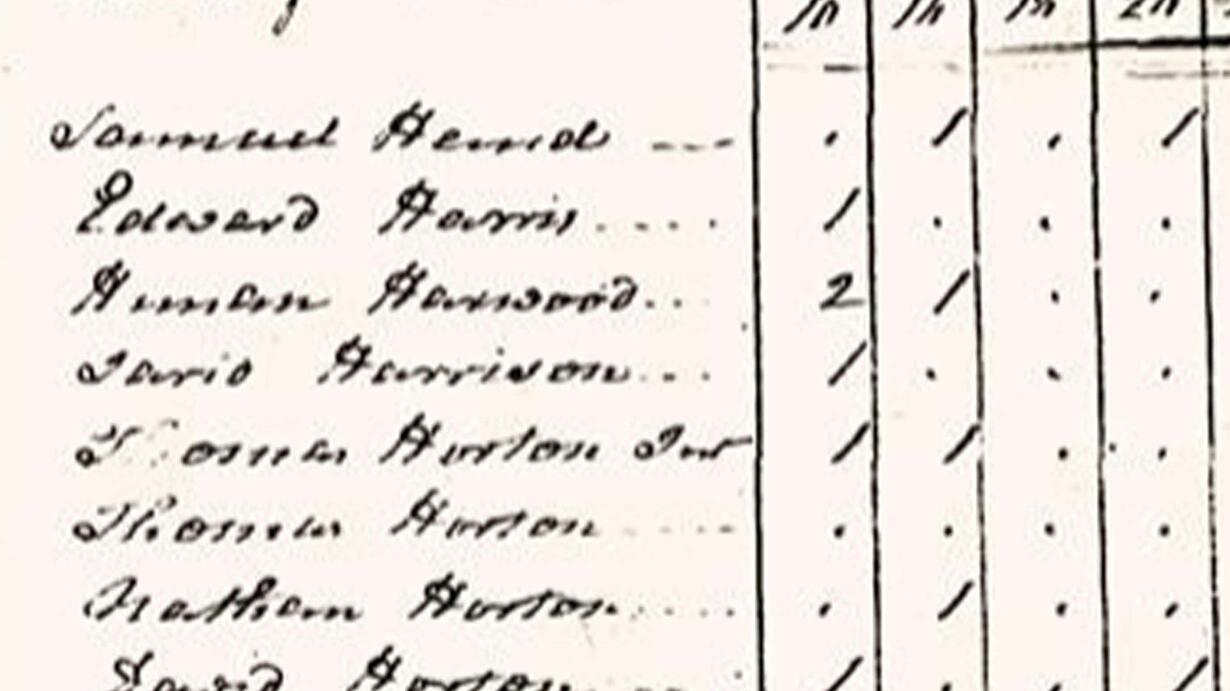 10 16 10 20
Samuel Hemd --- . 1 . 1
Edward Harris .... 1 . . .
Heman Harwood .. 2 1 . .
Harrison ... 1 . . .
Thomas Horton Junr 1 1 . .
Thomas Horton .... . . . .
Nathan Horton .... . 1 . .
David Horton 1 . . 1